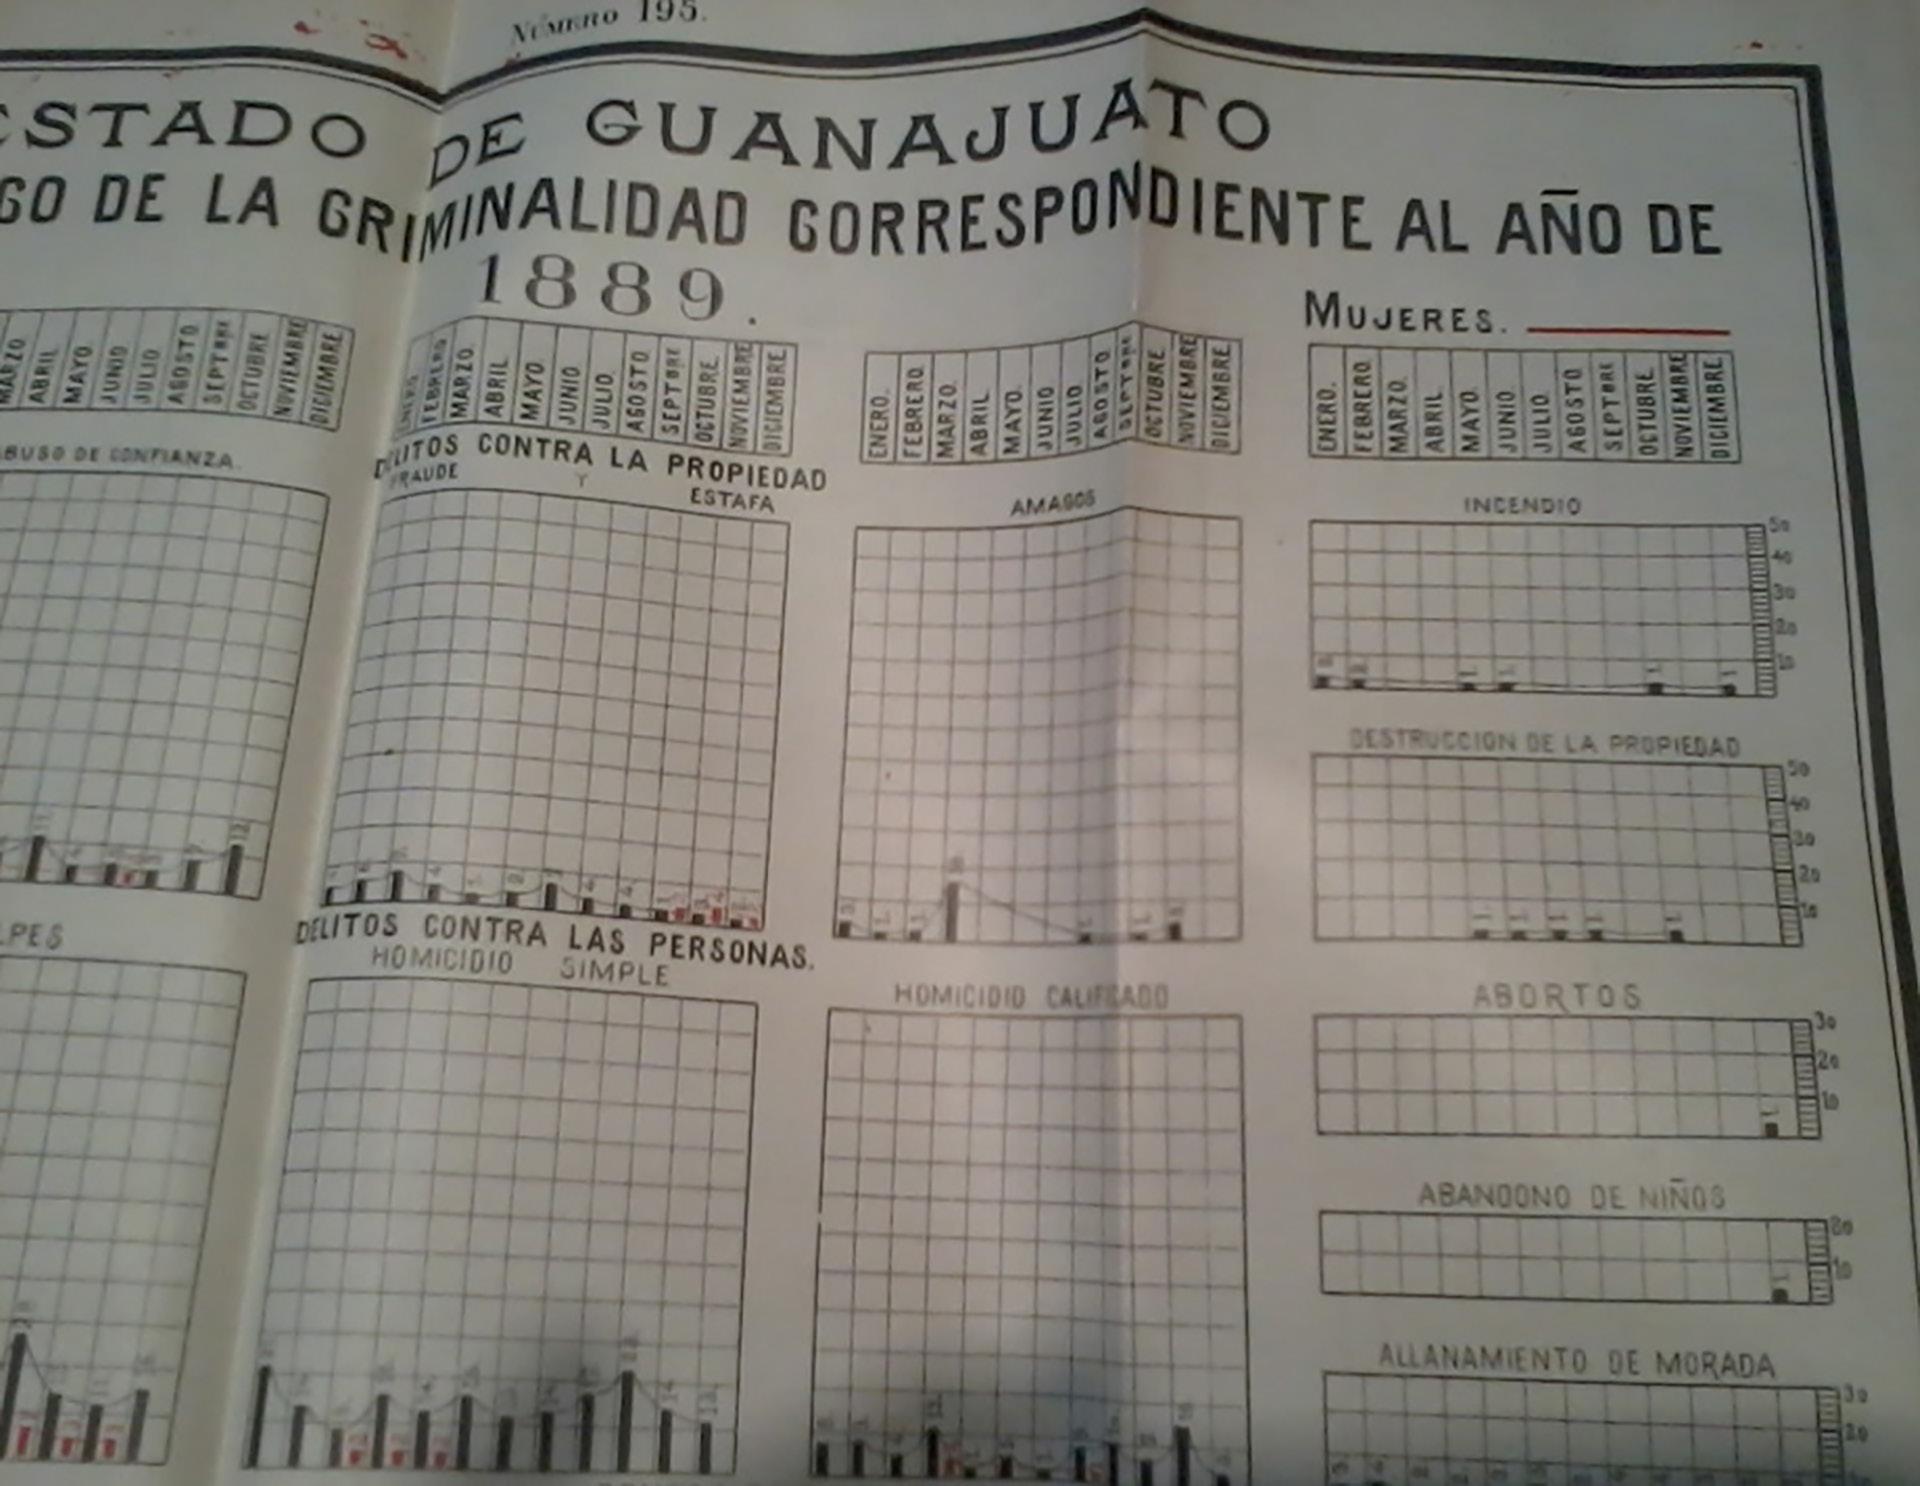 NÚMERO 195.
ESTADO DE GUANAJUATO
GO DE LA CRIMINALIDAD CORRESPONDIENTE AL AÑO DE
1889.
MUJERES.
MARZO. ABRIL. MAYO. JUNIO JULIO. AGOSTO. SEPTBRE OCTUBRE. NOVIEMBRE DICIEMBRE.
ENERO. FEBRERO. MARZO. ABRIL. MAYO. JUNIO. JULIO. AGOSTO. SEPTBRE OCTUBRE. NOVIEMBRE DICIEMBRE.
ENERO. FEBRERO. MARZO. ABRIL. MAYO. JUNIO JULIO. AGOSTO. SEPTBRE OCTUBRE. NOVIEMBRE DICIEMBRE.
ENERO. FEBRERO. MARZO. ABRIL. MAYO. JUNIO. JULIO. AGOSTO. SEPTBRE OCTUBRE. NOVIEMBRE DICIEMBRE.
ABUSO DE CONFIANZA.
11 12
DELITOS CONTRA LA PROPIEDAD
FRAUDE Y ESTAFA
AMAGOS
INCENDIO
50
40
30
20
10
DESTRUCCION DE LA PROPIEDAD
50
40
30
20
10
LPES
DELITOS CONTRA LAS PERSONAS.
HOMICIDIO SIMPLE
HOMICIDIO CALIFICADO
ABORTOS
30
20
10
ABANDONO DE NIÑOS
20
10
ALLANAMIENTO DE MORADA
30
20